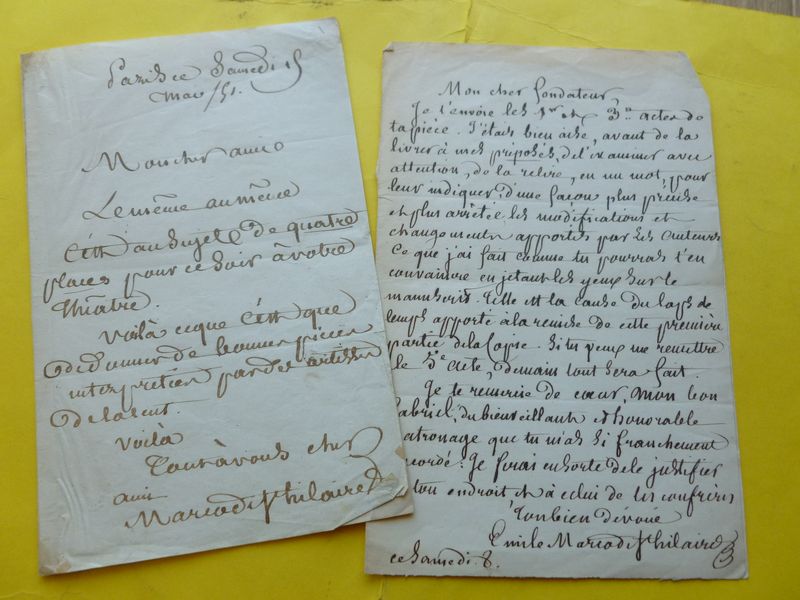 Paris ce Samedi 15
Mai /51.
Mon cher ami
Le même au même
C'est au sujet de quatre
places pour ce soir à votre
théâtre.
Voilà ce que c'est que
de donner de bonnes pièces
interprétées par des artistes
de talent.
Voilà
Tout à vous cher
ami
Marco de St hilaire
Mon cher fondateur,
Je t'envoie les 1er et 3e actes de
ta pièce. J'étais bien aise, avant de la
livrer à mes préposés, de l'examiner avec
attention, de la relire, en un mot, pour
leur indiquer, d'une façon plus précise
et plus arrêtée les modifications et
changements apportés par les auteurs
Ce que j'ai fait comme tu pourras t'en
convaincre en jetant les yeux sur le
manuscrit. Telle est la cause du laps de
temps apporté à la remise de cette première
partie de la copie. Si tu veux me remettre
le 5e acte, demain tout sera fait.
Je te remercie de cœur, mon bon
Gabriel, du bienveillant et honorable
patronage que tu m'as si franchement
accordé. Je ferai en sorte de le justifier
ton endroit et à celui de tes confrères
Ton bien dévoué
Emile Marco de St hilaire
ce Samedi 8.